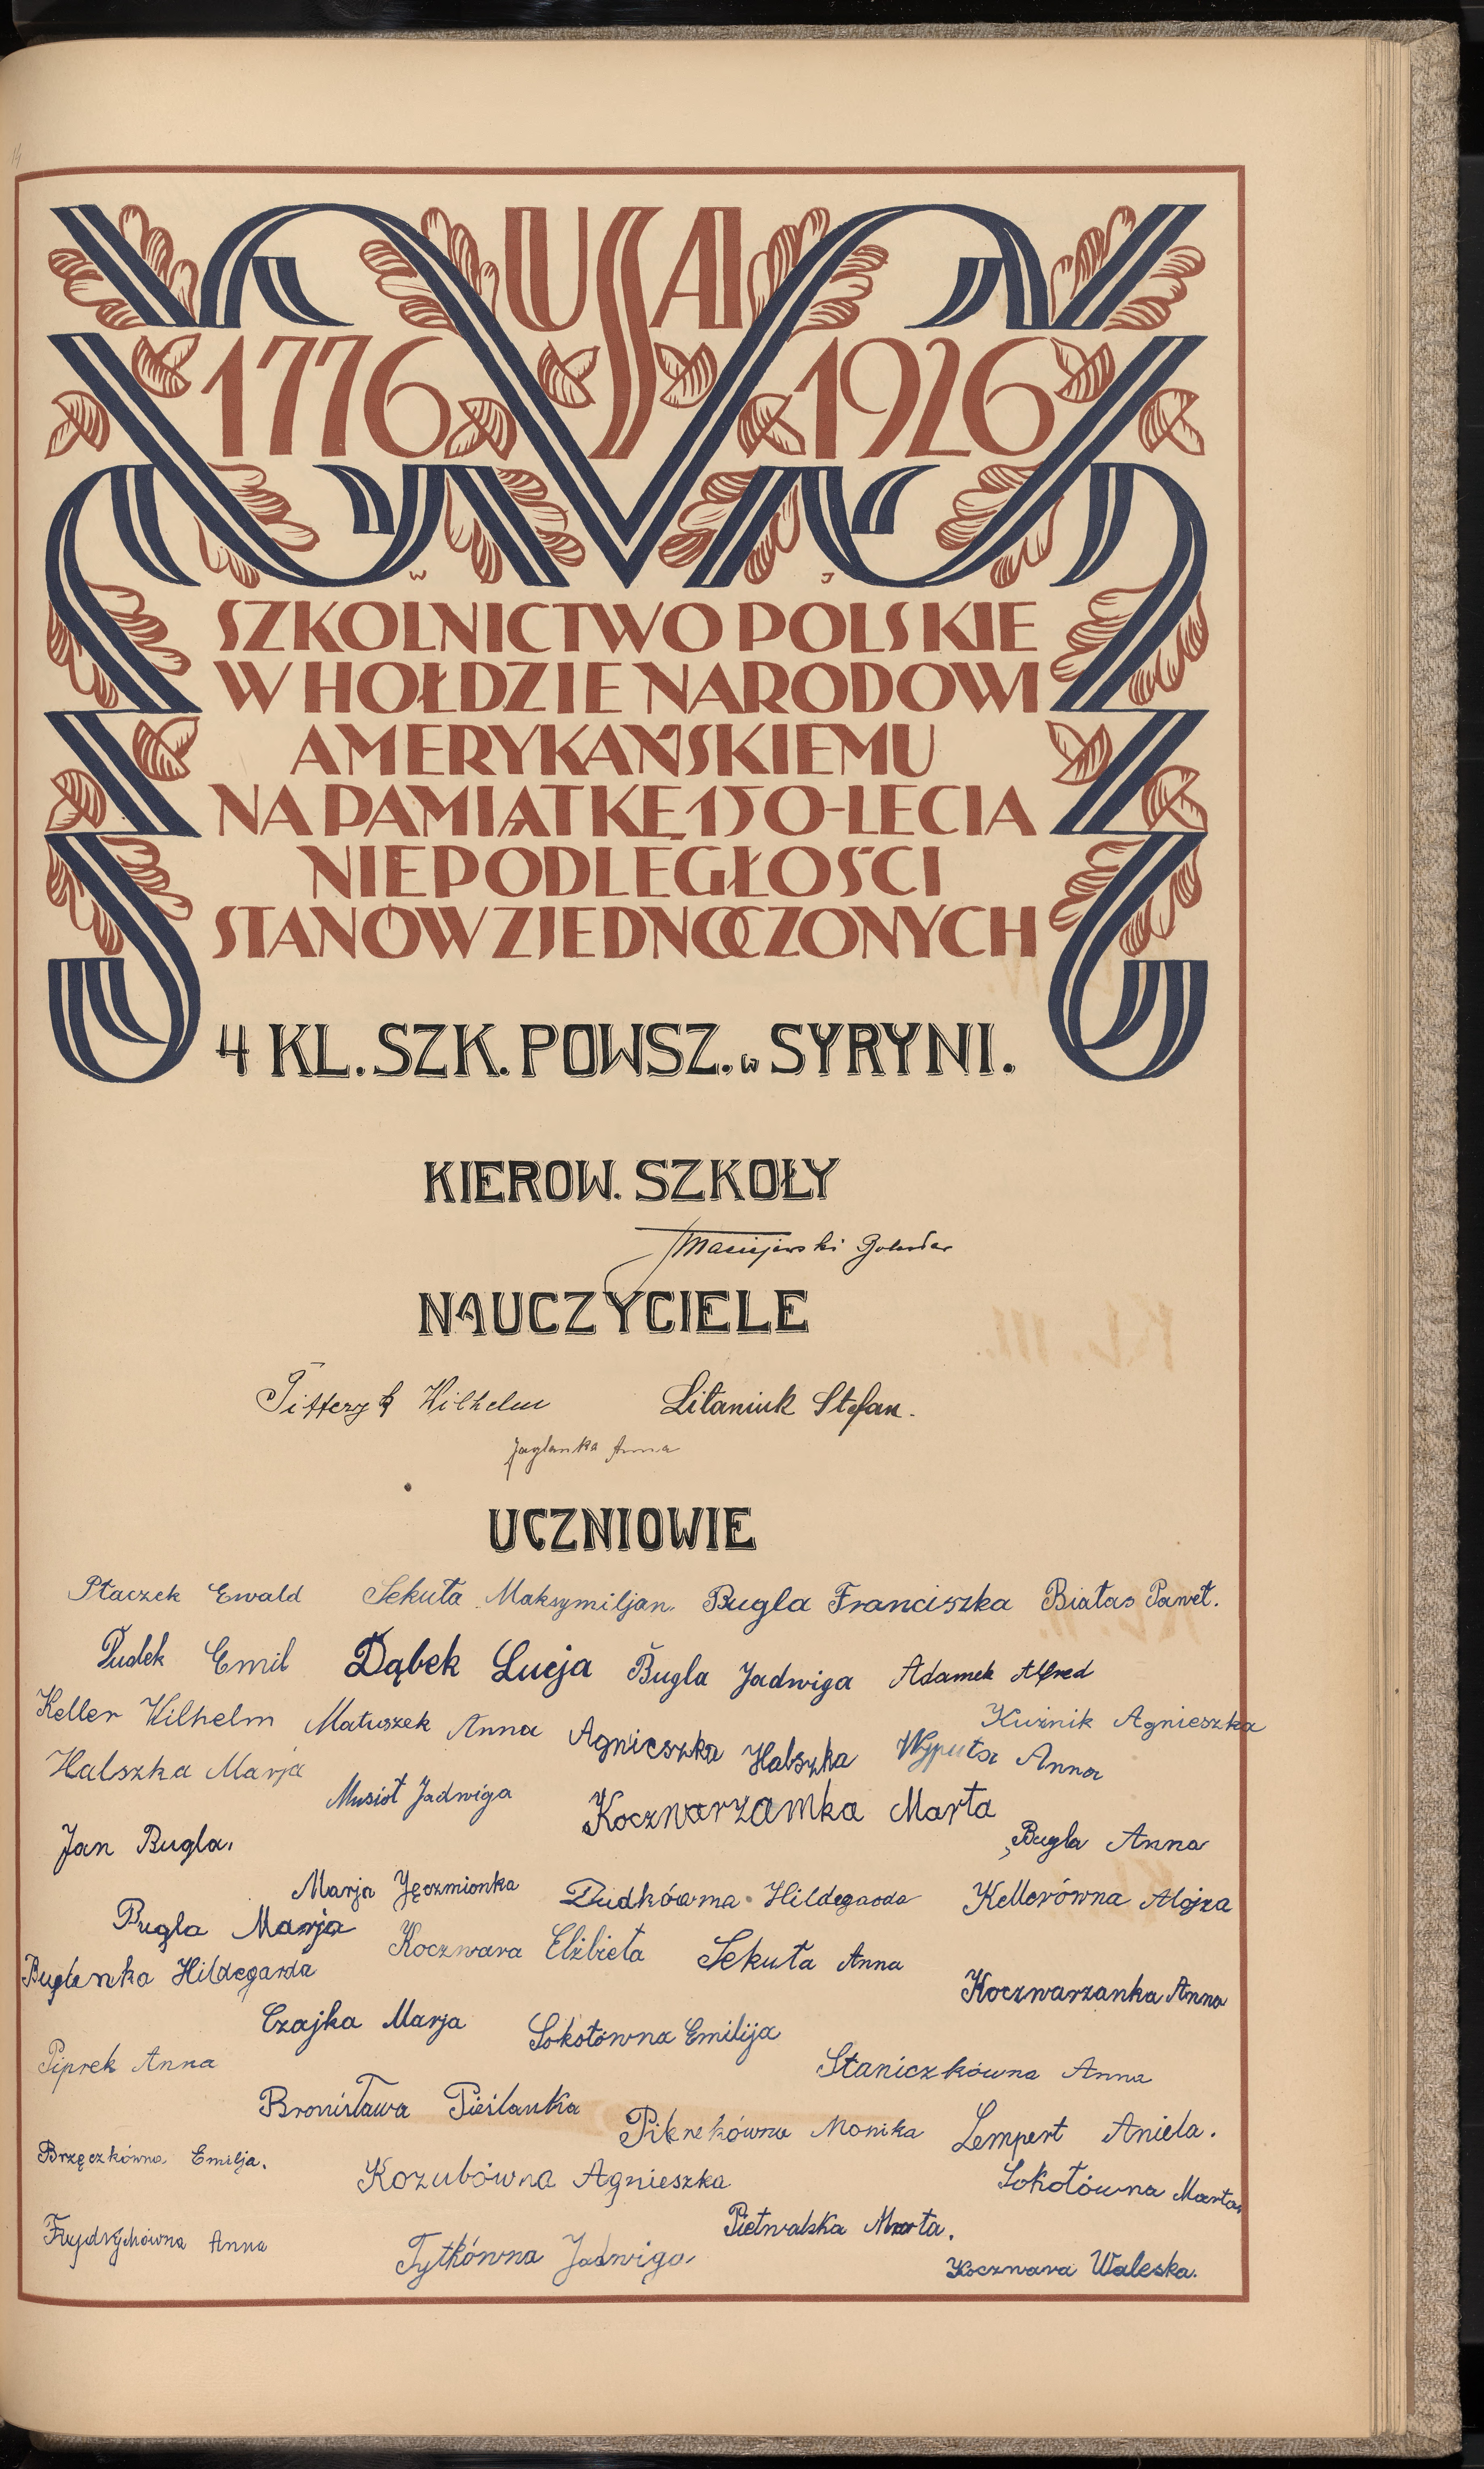 14
USA
1776 1926
W J
SZKOLNICTWO POLSKIE
W HOŁDZIE NARODOWI
AMERYKAŃSKIEMU
NA PAMIĄTKĘ 150-LECIA
NIEPODLEGŁOŚCI
STANÓW ZJEDNOCZONYCH
4 KL. SZK. POWSZ. w SYRYNI.
KIEROW. SZKOŁY
Maciejewski
NAUCZYCIELE
Wilhelm Litaniuk Stefan.
Jaglanka Anna
UCZNIOWIE
Ptaczek Ewald Sekuła Maksymiljan. Bugla Franciszka Białas Paweł.
Dudek Emil Dąbek Lucja Bugla Jadwiga Adamek Alfred
Keller Wilhelm Matuszek Anna Agnieszka Halszka Wyputa Anna Kuźnik Agnieszka
Halszka Marja Musioł Jadwiga Koczwarzamka Marta
Jan Bugla. Bugla Anna
Marja Jęczmionka Dudkówna Hildegarda Kellerówna Alojza
Bugla Marja Koczwara Elżbieta Sekuła Anna
Buglanka Hildegarda Koczwarzanka Anna
Czajka Marja Sokołówna Emilija
Piprek Anna Staniczkówna Anna
Bronisława Pieślanka Monika Lempert Aniela.
Brzęczkówna Emilja. Kozubówna Agnieszka Sokołówna Marta
Frydrychówna Anna Tytkówna Jadwiga Pietwalska Marta.
Koczwara Waleska.